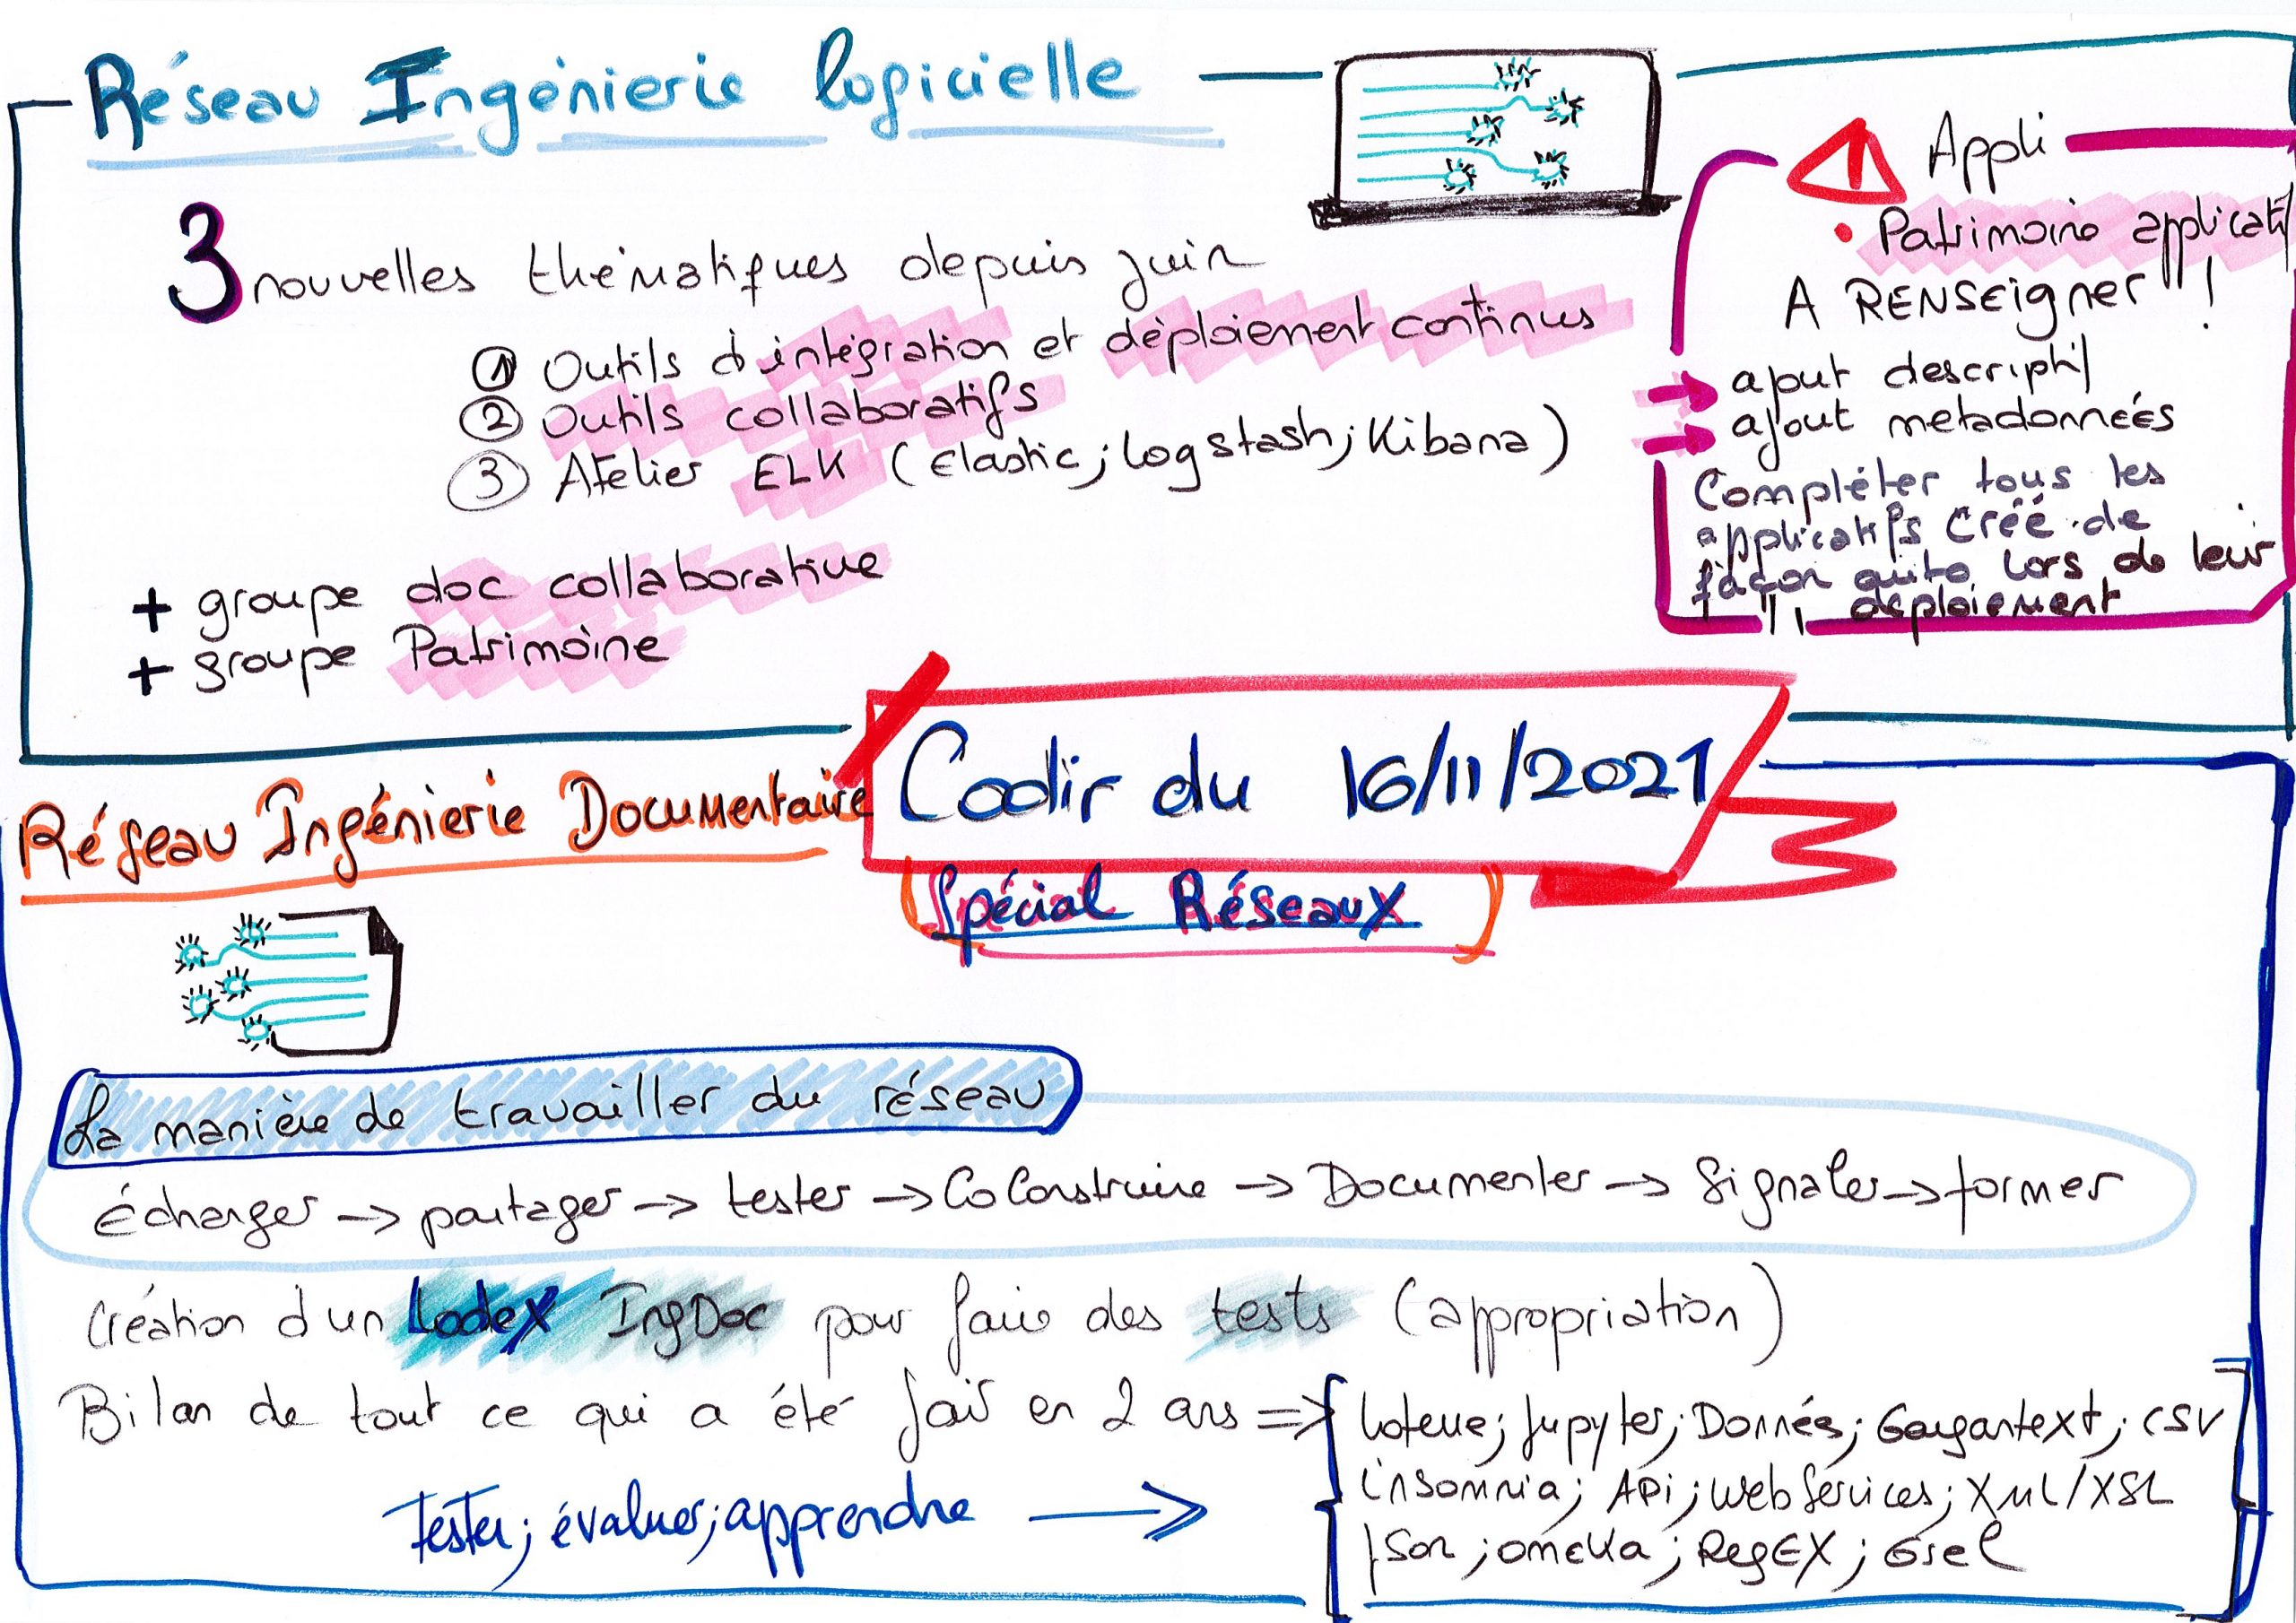 Réseau Ingénierie logicielle
3 nouvelles thématiques depuis juin
① Outils d'intégration et déploiement continus
② Outils collaboratifs
③ Atelier ELK (Elastic; Logstash; Kibana)
+ groupe doc collaborative
+ groupe Patrimoine
! Appli
• Patrimoine applicatif
A RENSEigner !
→ ajout descriptif
→ ajout metadonnées
Compléter tous les
applicatifs créé de
façon auto lors de leur
déploiement
Codir du 16/11/2021
Spécial Réseaux
Réseau Ingénierie Documentaire
La manière de travailler du réseau
échanger -> partager -> tester -> CoConstruire -> Documenter -> Signaler -> former
Création d'un Lodex IngDoc pour faire des tests (appropriation)
Bilan de tout ce qui a été fait en 2 ans =>
Loterre; Jupyter; Donnés; Gargantext; CSV
insomnia; APi; Web Services; XML/XSL
JSon; omeka; RegEX; Grel
Tester; évaluer; apprendre →